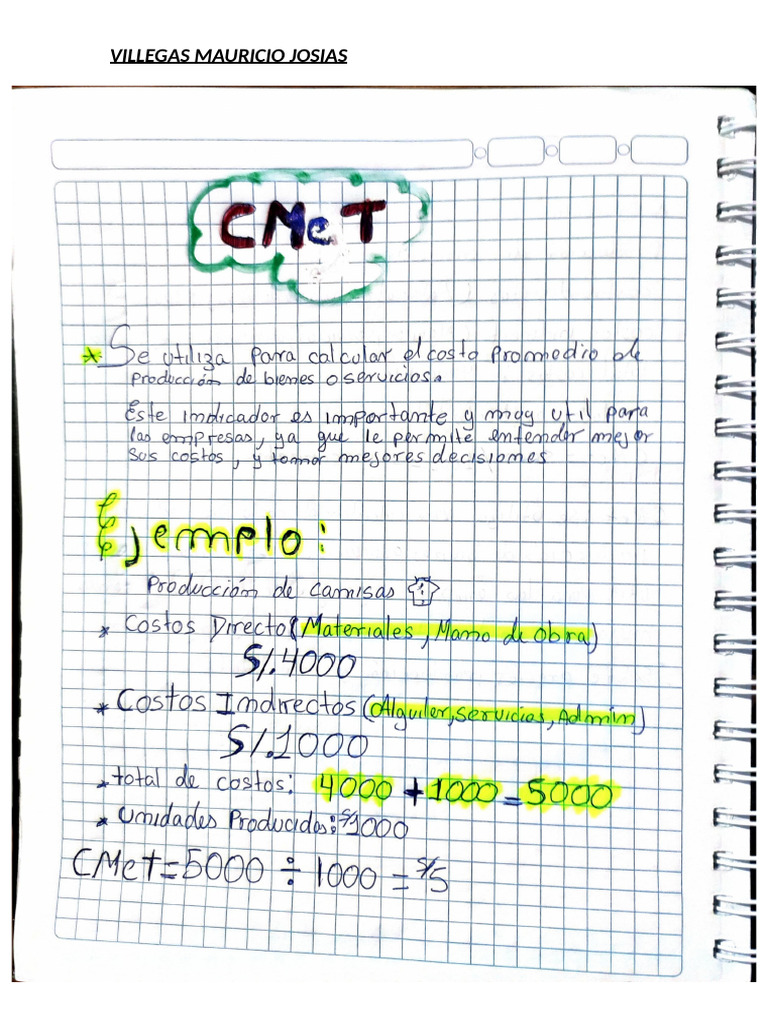 VILLEGAS MAURICIO JOSIAS
CMeT
* Se utiliza para calcular el costo promedio de
producción de bienes o servicios.
Este indicador es importante y muy util para
las empresas, ya que le permite entender mejor
sus costos, y tomar mejores decisiones
Ejemplo:
Producción de camisas
* Costos Directo (Materiales, Mano de obra)
S/.4000
* Costos Indirectos (Alguiler, servicios, Admin)
S/.1000
* total de costos: 4000 + 1000 = 5000
* Unidades Producidas: S/1000
CMeT = 5000 ÷ 1000 = S/5